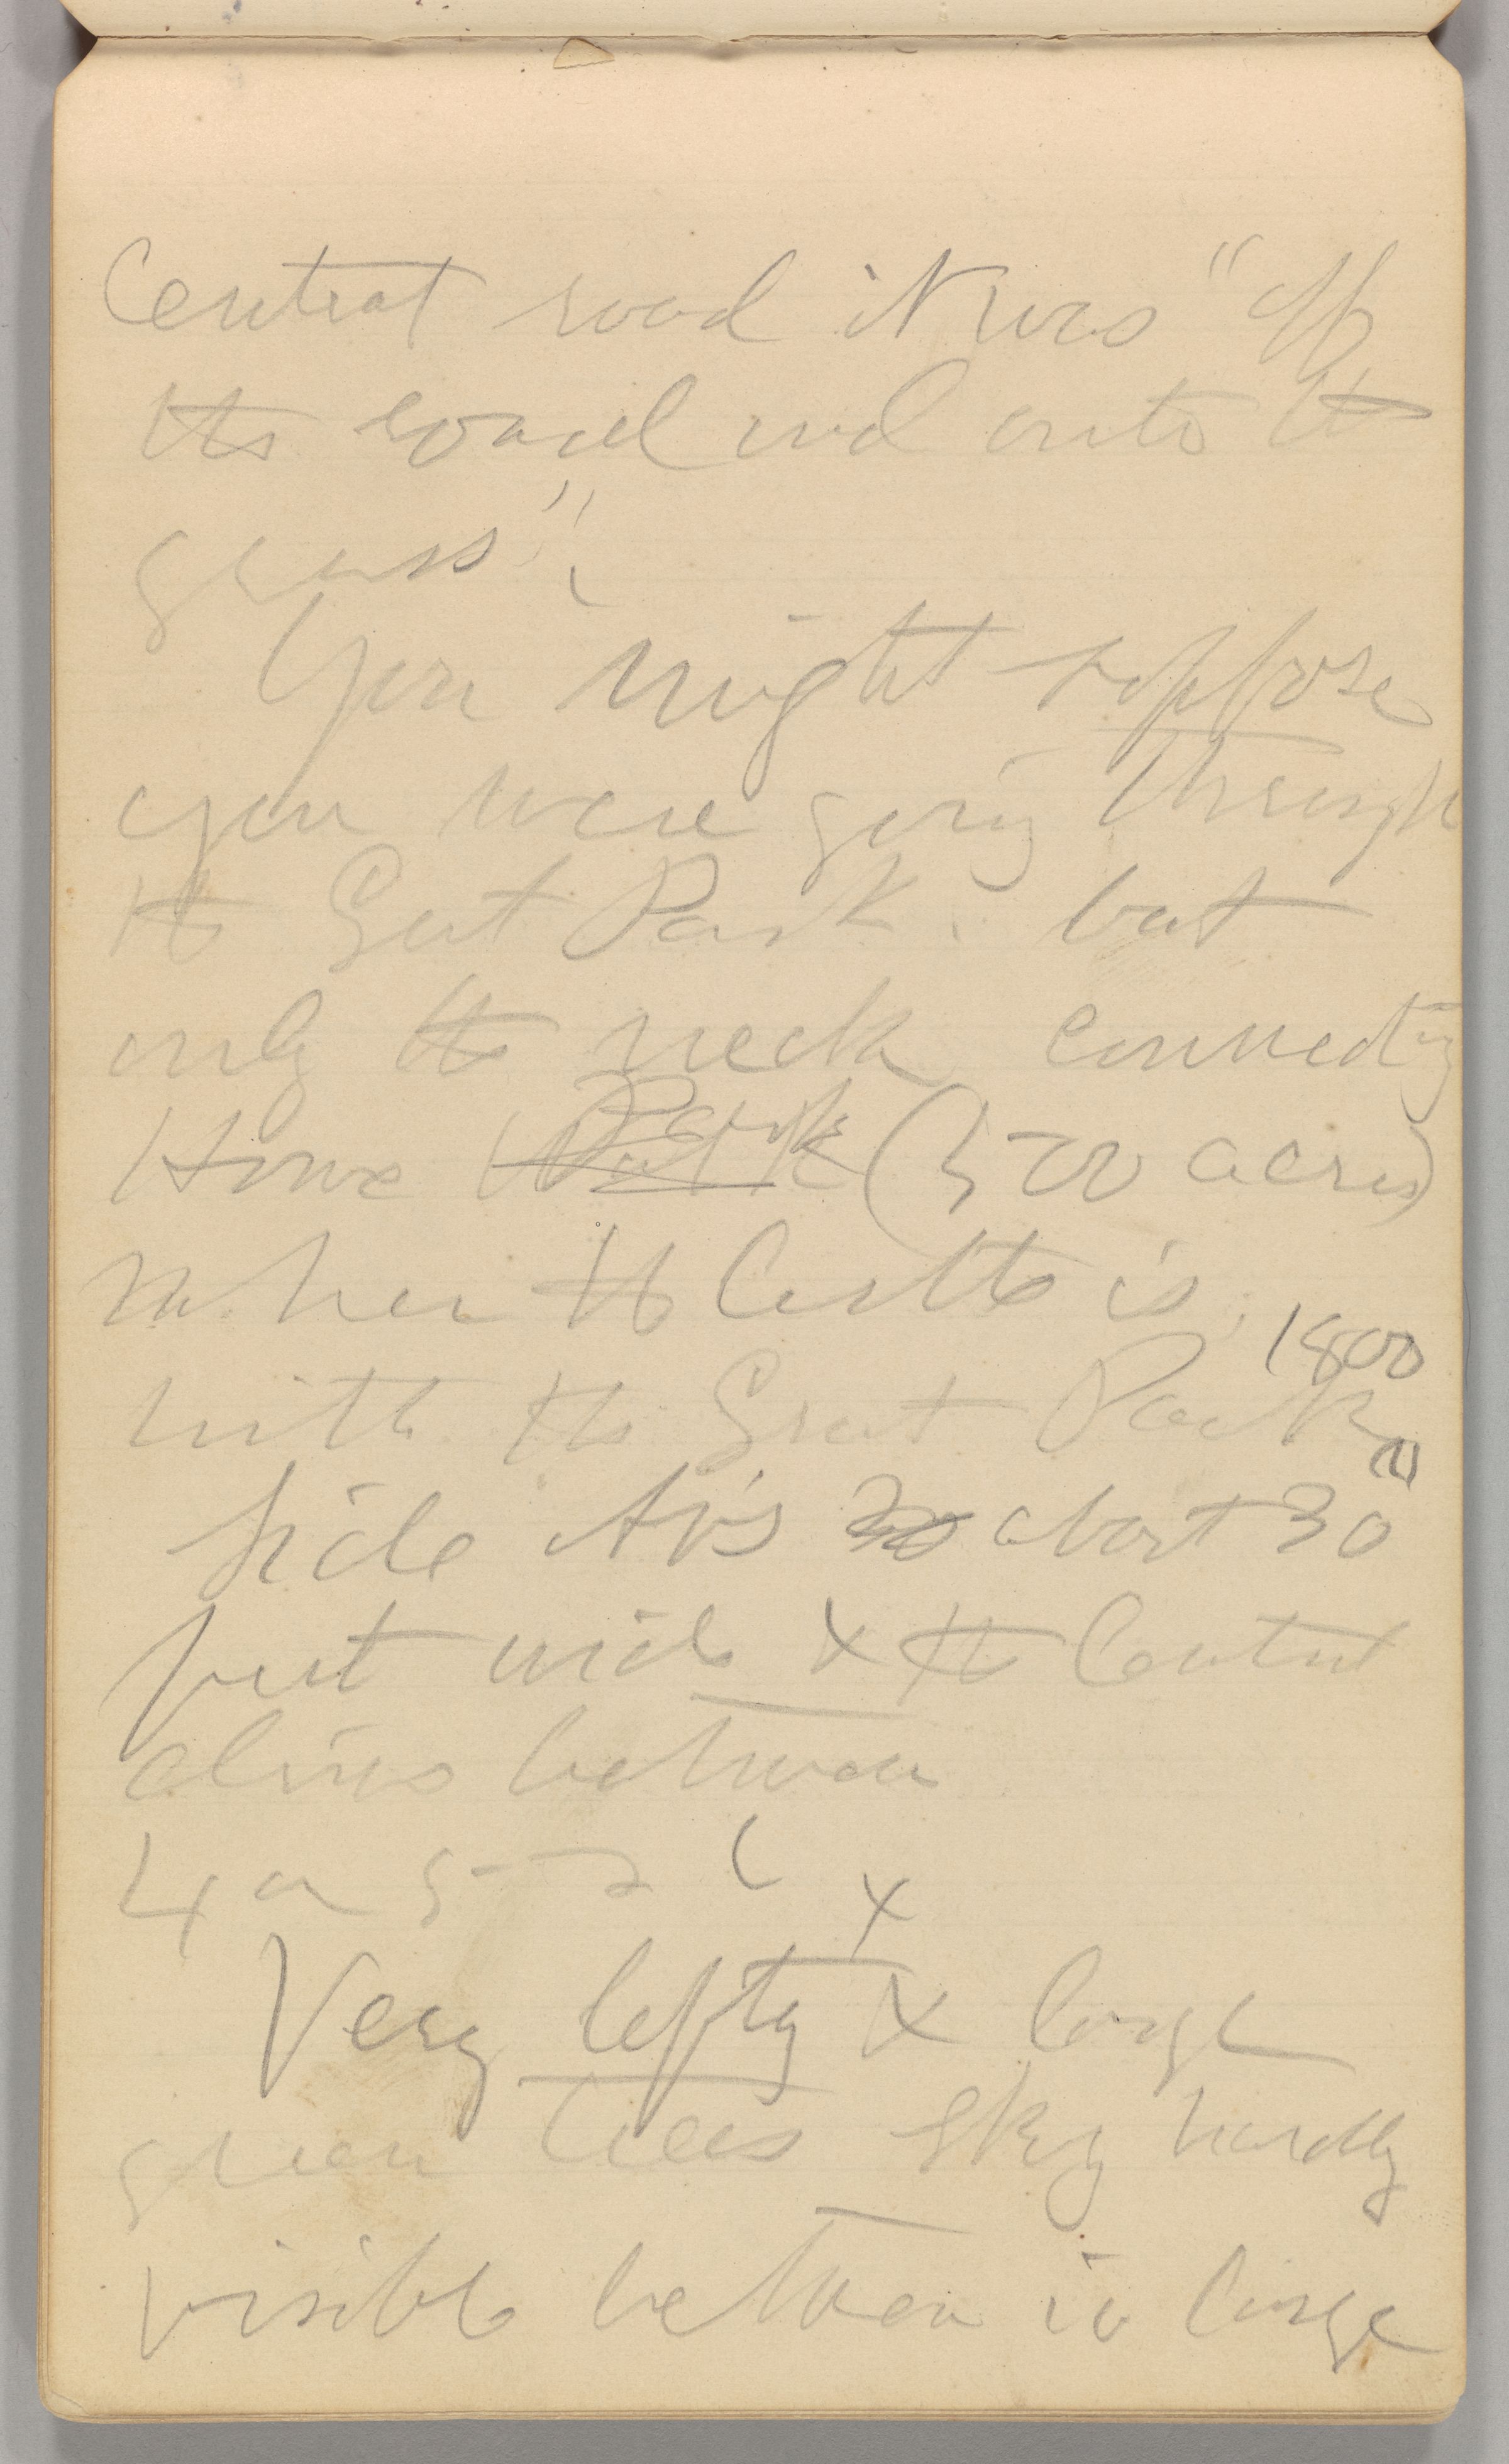 Central road it was "off
the road and onto the
grass".
You might suppose
you were going through
the Great Park. but
only the neck connecting
Home Park (500 acres)
where the Castle is,
with the Great Park 1800
Side Av's about 30
feet wide & the Central
elms between
4 or 5
Very lofty & large
green trees sky hardly
visible between in large